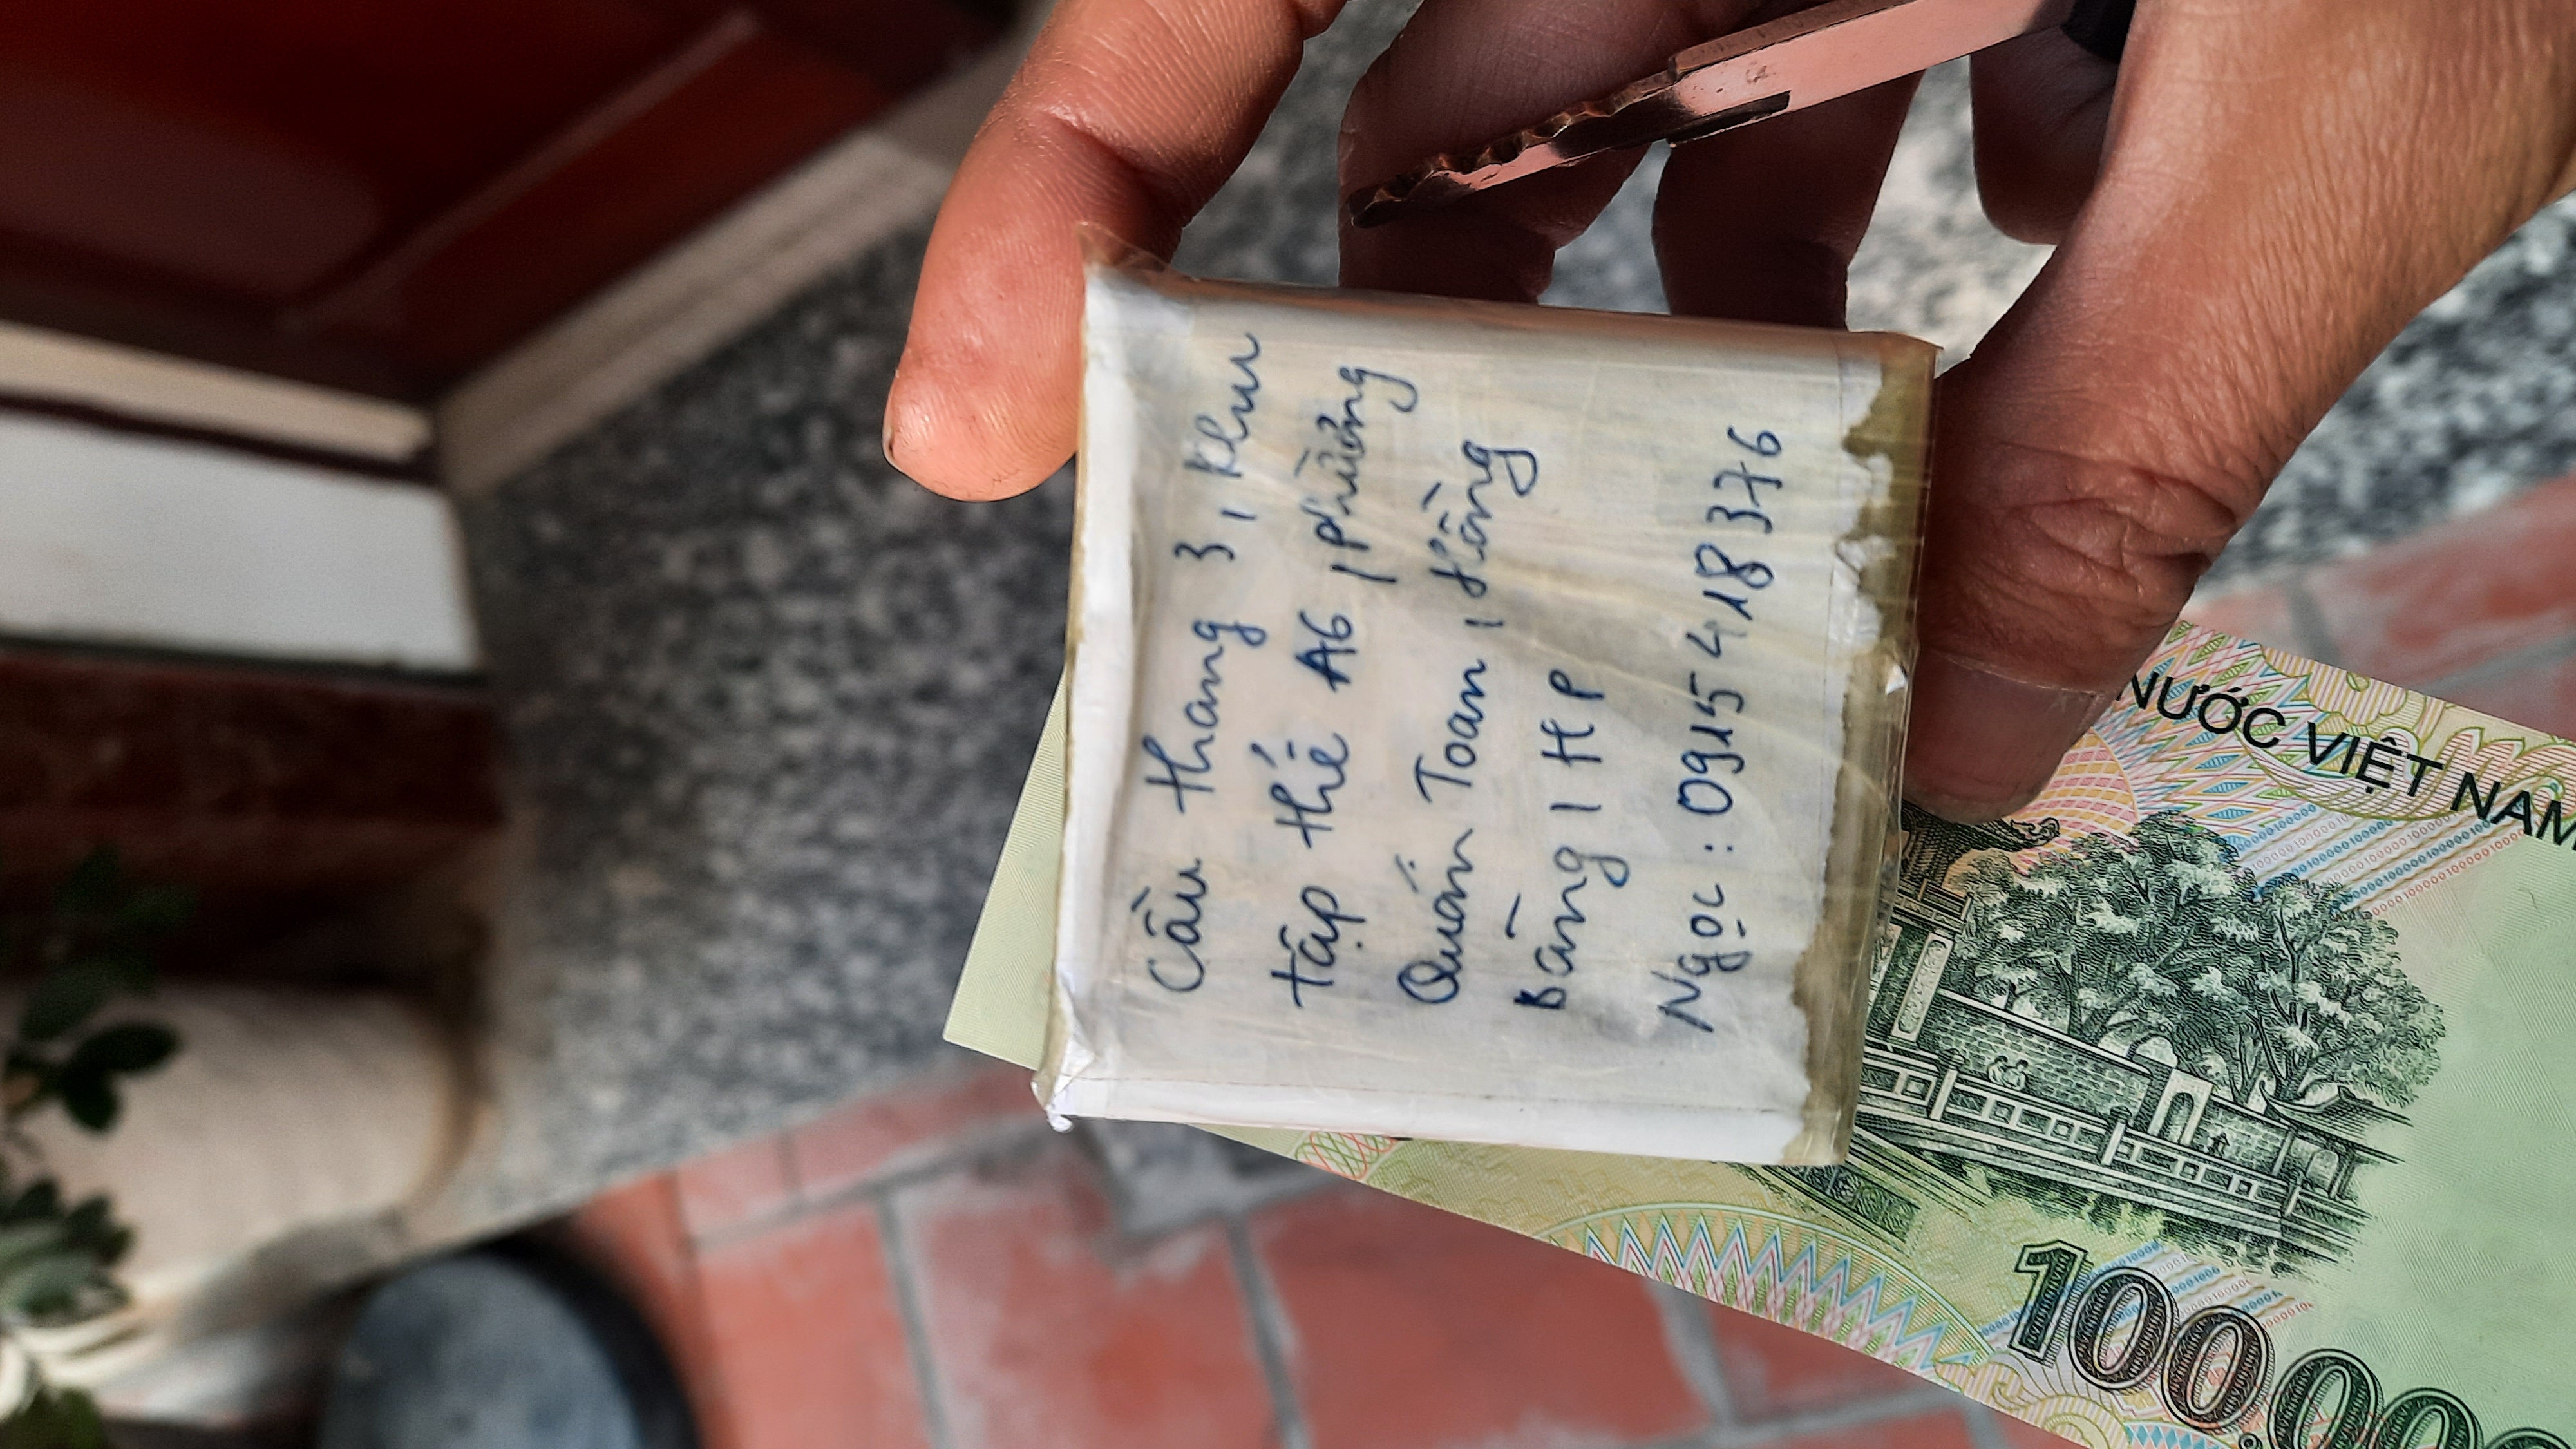 Cầu thang 3, Khu
tập thể A6, Phường
Quán Toan, Hồng
Bàng, HP
Ngọc: 0915418376
NƯỚC VIỆT NAM
100.00